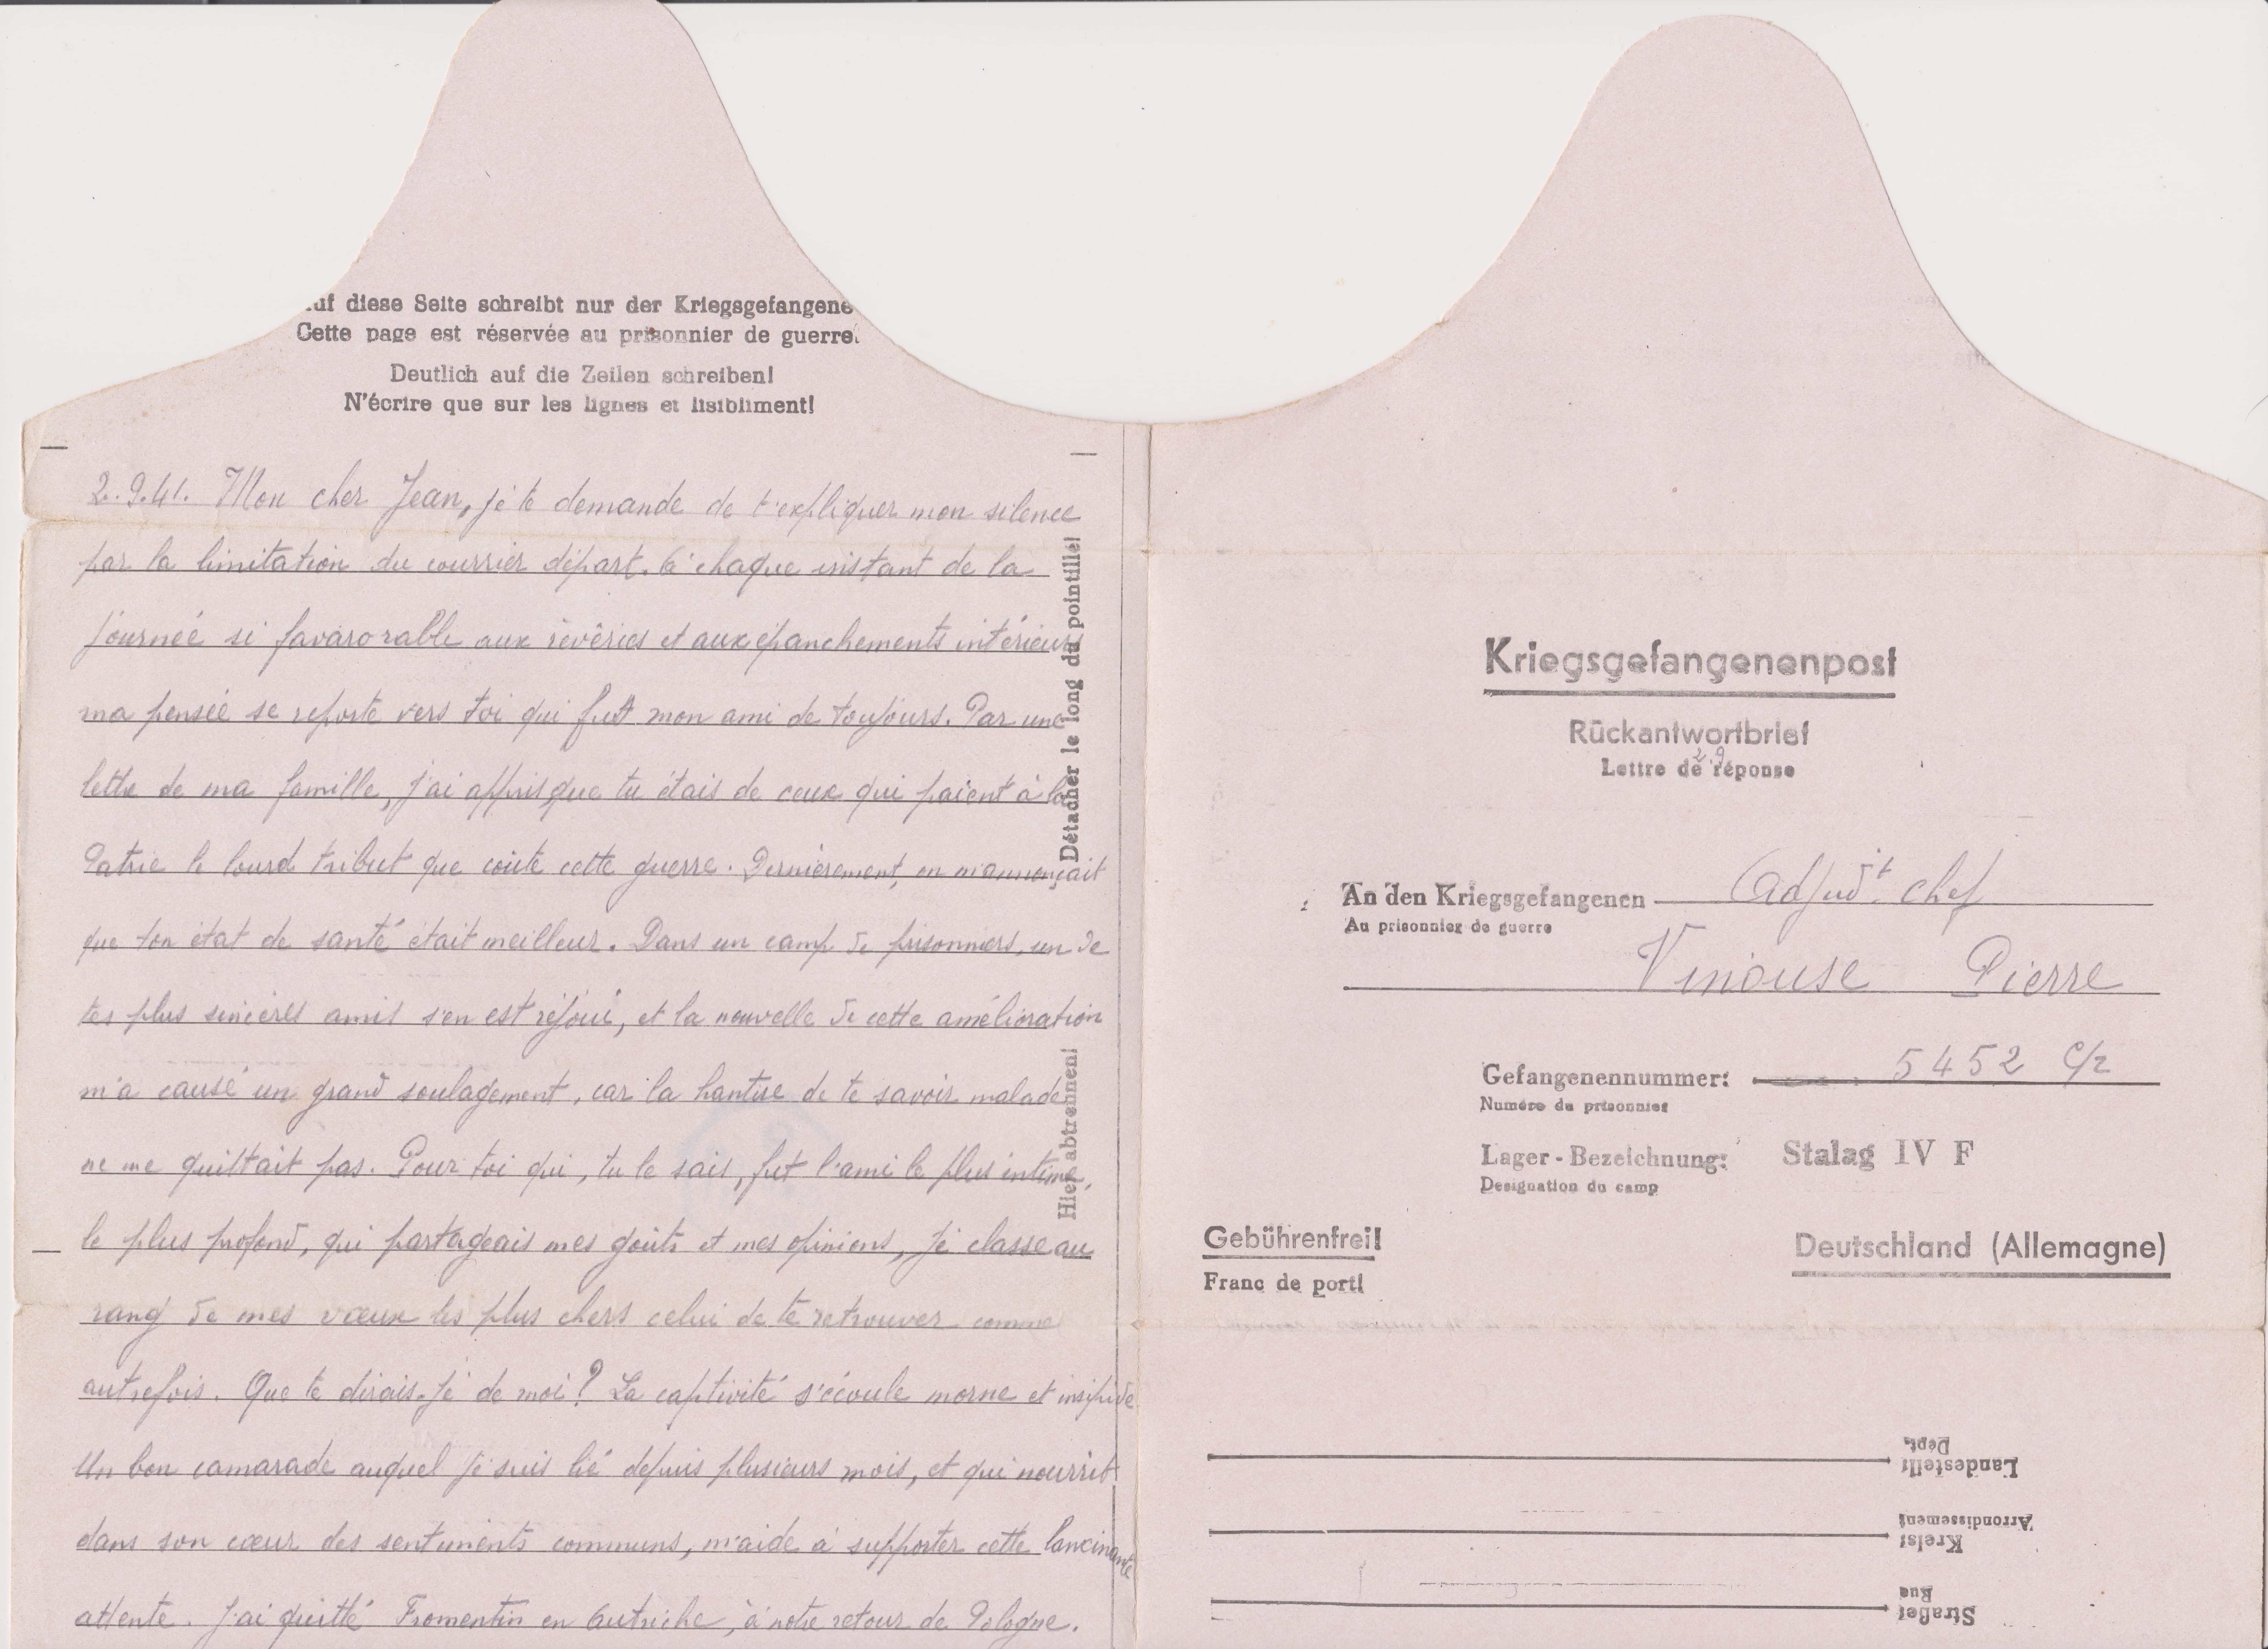 uf diese Seite schreibt nur der Kriegsgefangene
Cette page est réservée au prisonnier de guerre.
Deutlich auf die Zeilen schreiben!
N'écrire que sur les lignes et lisibliment!
2.9.41. Mon cher Jean, je te demande de t'expliquer mon silence
par la limitation du courrier départ. à chaque instant de la
journée si favarorable aux rêvêries et aux épanchements intérieurs
ma pensée se reporte vers toi qui fut mon ami de toujours. Par une
lettre de ma famille, j'ai appris que tu étais de ceux qui paient à la
Patrie le lourd tribut que coûte cette guerre. Dernièrement, on m'annonçait
que ton état de santé était meilleur. Dans un camp de prisonniers, un de
tes plus sincères amis s'en est réjoui, et la nouvelle de cette amélioration
m'a causé un grand soulagement, car la hantise de te savoir malade
ne me quittait pas. Pour toi qui, tu le sais, fut l'ami le plus intime,
le plus profond, qui partageais mes goûts et mes opinions, je classe au
rang de mes vœux les plus chers celui de te retrouver comme
autrefois. Que te dirais-je de moi? La captivité s'écoule morne et insipide
Un bon camarade auquel je suis lié depuis plusieurs mois, et qui nourrit
dans son cœur des sentiments communs, m'aide à supporter cette lancinante
attente. J'ai quitté Fromentin en Autriche, à notre retour de Pologne.
Détacher le long du pointillé!
Hier abtrennen!
Kriegsgefangenenpost
Rückantwortbrief
2.9
Lettre de réponse
An den Kriegsgefangenen Adjudt. chef
Au prisonnier de guerre
Vinouse Pierre
Gefangenennummer: 5452 C/2
Numéro du prisonnier
Lager-Bezeichnung: Stalag IV F
Designation du camp
Gebührenfrei!
Franc de port!
Deutschland (Allemagne)
Dépt.
Landesteil:
Arrondissement
Kreis:
Rue
Straße: